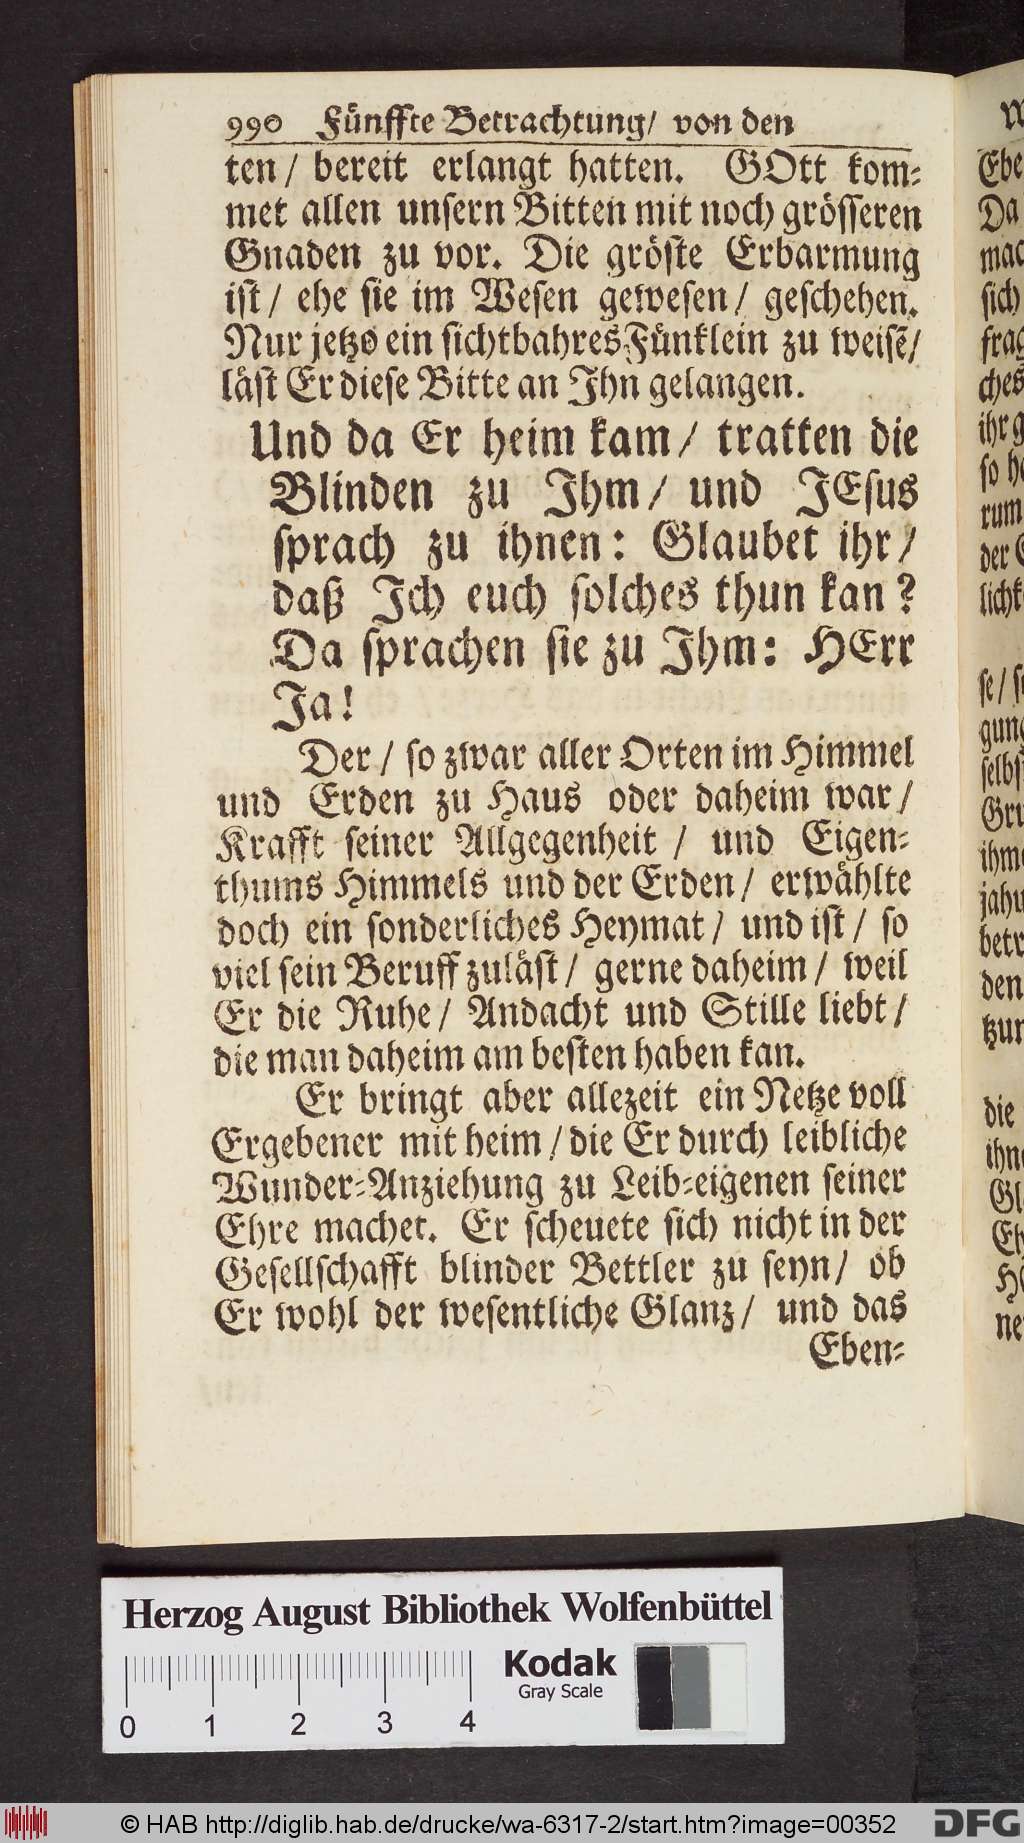 990 Fünffte Betrachtung/ von den
ten/ bereit erlangt hatten. GOtt kom-
met allen unsern Bitten mit noch grösseren
Gnaden zu vor. Die gröste Erbarmung
ist/ ehe sie im Wesen gewesen/ geschehen.
Nur jetzo ein sichtbahres Fünklein zu weisẽ/
läst Er diese Bitte an Ihn gelangen.
Und da Er heim kam/ tratten die
Blinden zu Ihm/ und JEsus
sprach zu ihnen: Glaubet ihr/
daß Ich euch solches thun kan?
Da sprachen sie zu Ihm: HErr
Ja!
Der/ so zwar aller Orten im Himmel
und Erden zu Haus oder daheim war/
Krafft seiner Allgegenheit/ und Eigen-
thums Himmels und der Erden/ erwählte
doch ein sonderliches Heymat/ und ist/ so
viel sein Beruff zuläst/ gerne daheim/ weil
Er die Ruhe/ Andacht und Stille liebt/
die man daheim am besten haben kan.
Er bringt aber allezeit ein Netze voll
Ergebener mit heim/ die Er durch leibliche
Wunder-Anziehung zu Leib-eigenen seiner
Ehre machet. Er scheuete sich nicht in der
Gesellschafft blinder Bettler zu seyn/ ob
Er wohl der wesentliche Glanz/ und das
Eben-
Herzog August Bibliothek Wolfenbüttel
Kodak
Gray Scale
0 1 2 3 4
© HAB http://diglib.hab.de/drucke/wa-6317-2/start.htm?image=00352
DFG